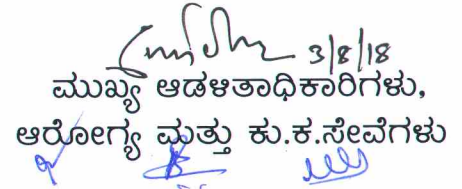 3/8/18
ಮುಖ್ಯ ಆಡಳಿತಾಧಿಕಾರಿಗಳು,
ಆರೋಗ್ಯ ಮತ್ತು ಕು.ಕ.ಸೇವೆಗಳು